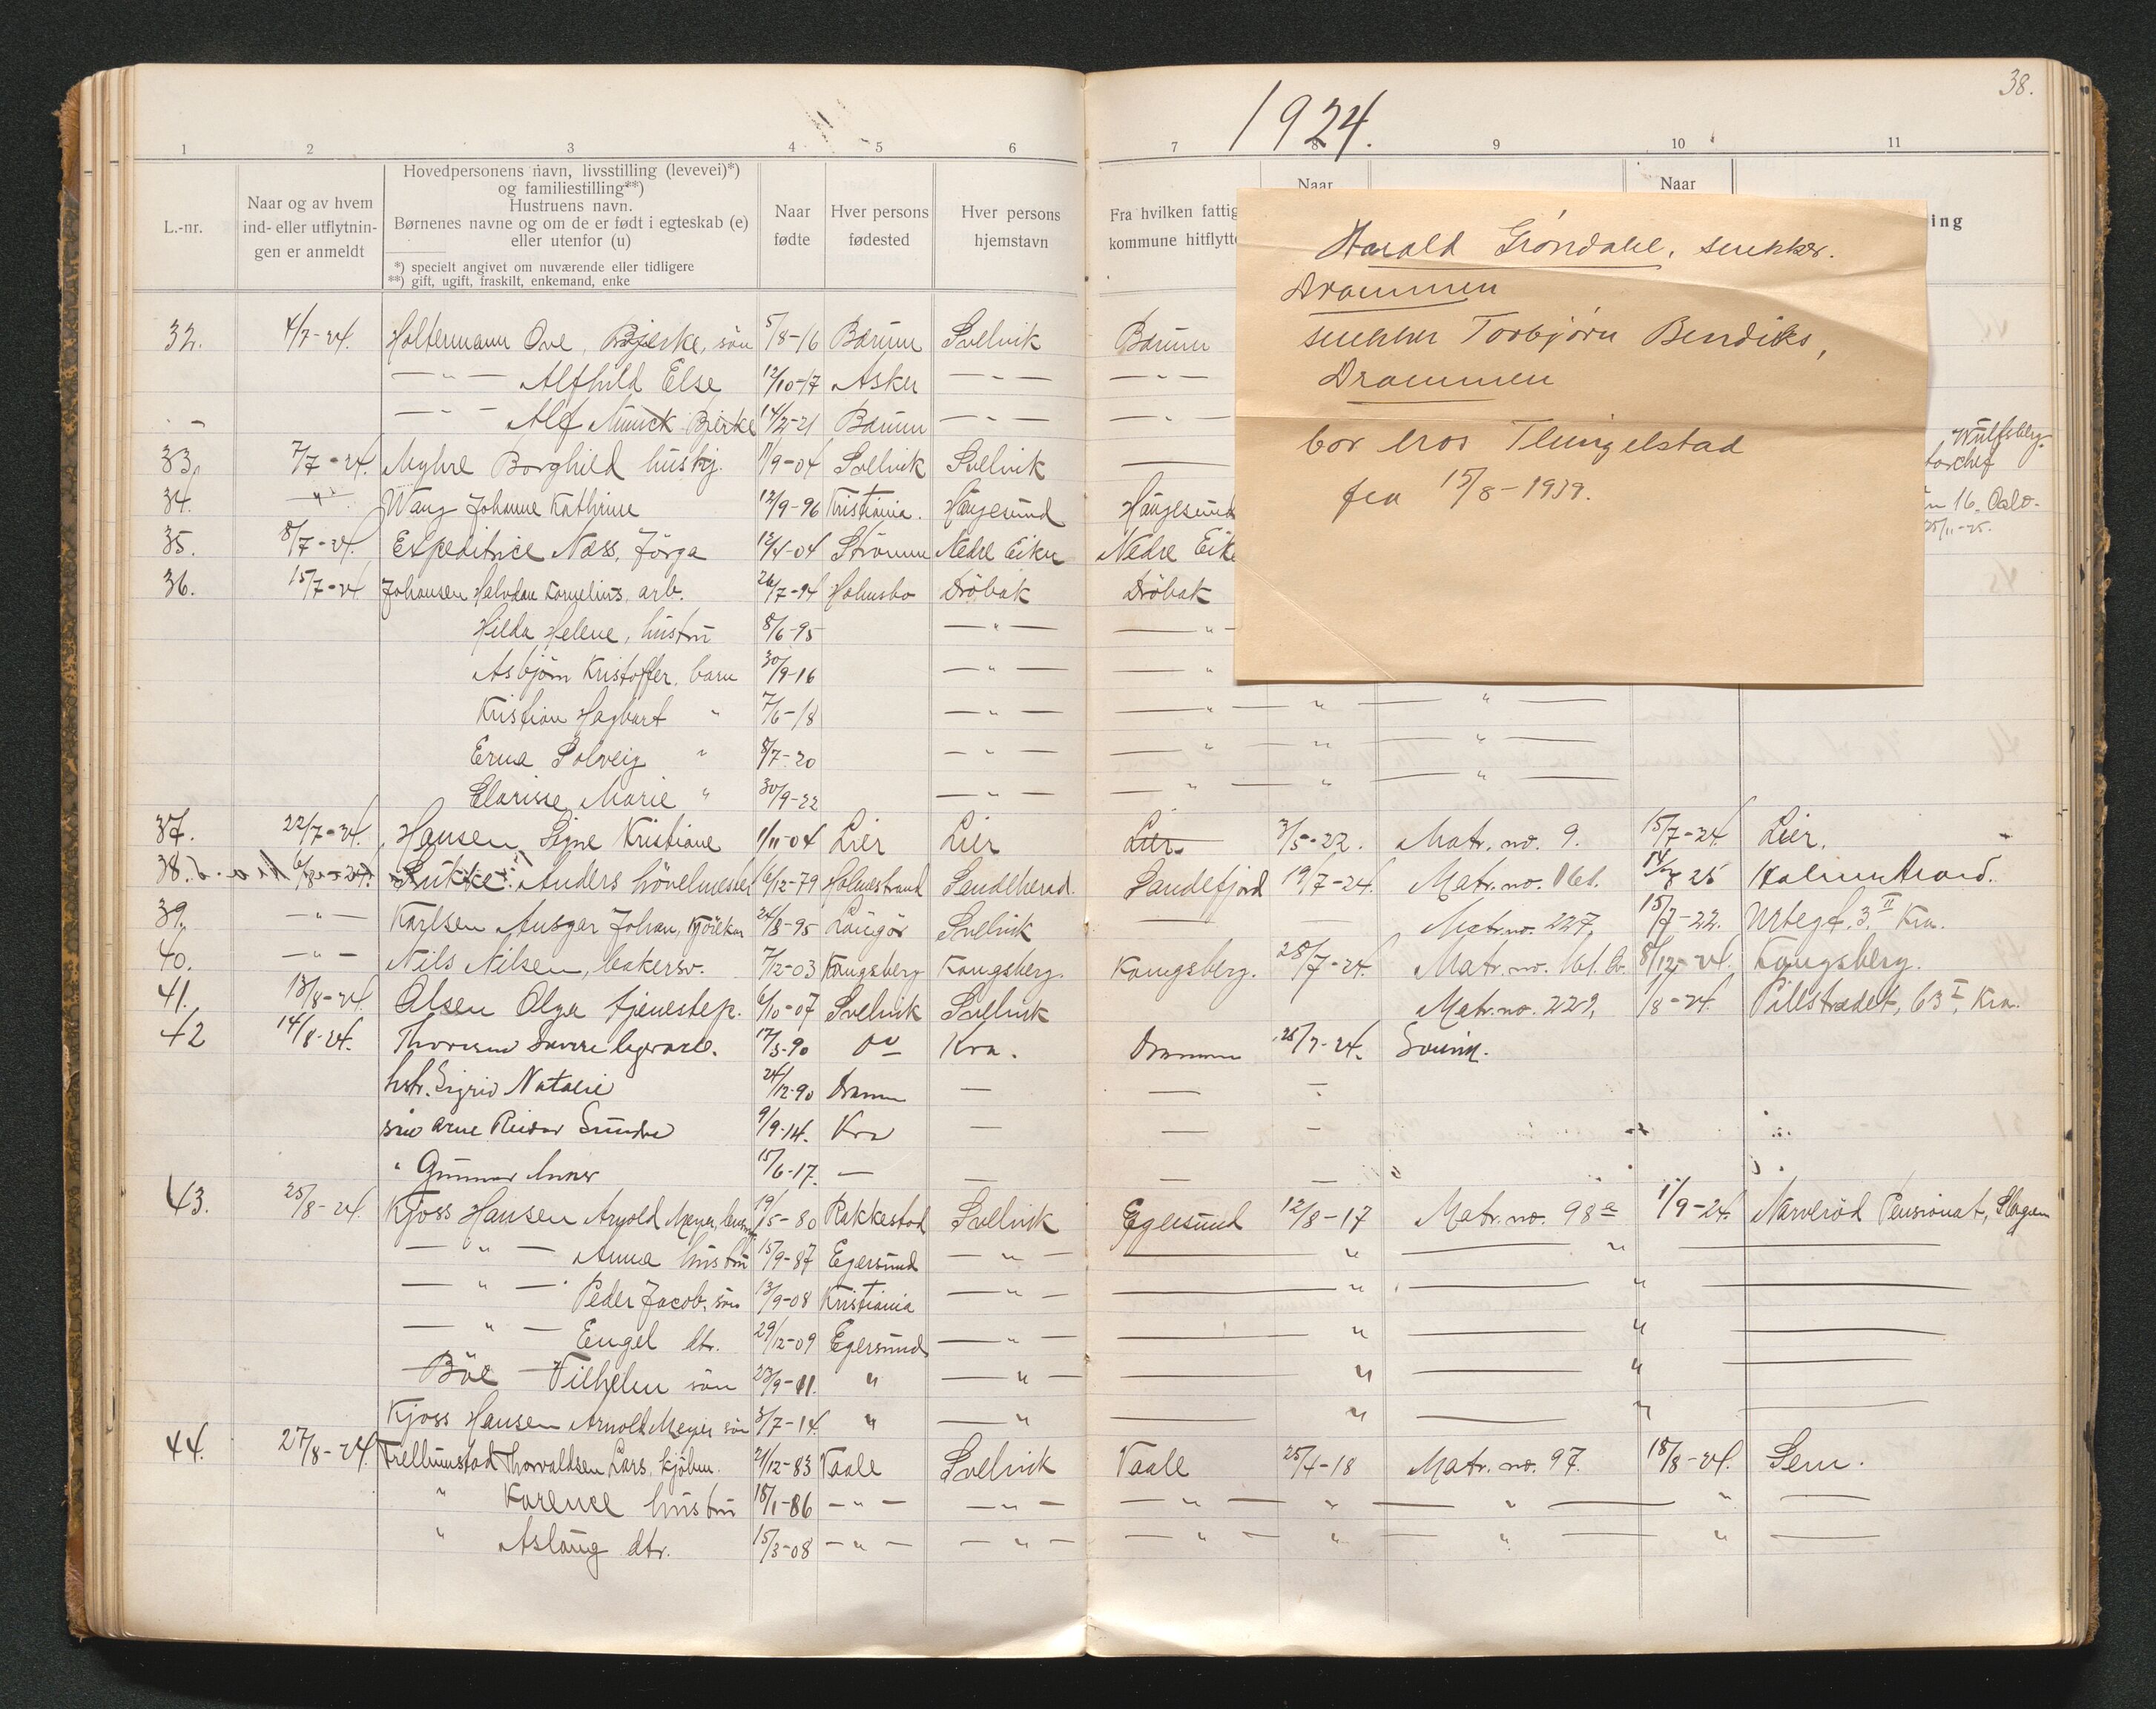 38.
1924.
1 2 3 4 5 6 7 8 9 10 11
L.-nr.
Naar og av hvem
ind- eller utflytnin-
gen er anmeldt
Hovedpersonens navn, livsstilling (levevei)*)
og familiestilling**)
Hustruens navn.
Børnenes navne og om de er født i egteskab (e)
eller utenfor (u)
*) specielt angivet om nuværende eller tidligere
**) gift, ugift, fraskilt, enkemand, enke
Naar
fødte
Hver persons
fødested
Hver persons
hjemstavn
Fra hvilken fattig
kommune hitflytte
Naar
Naar
ing
Harald Gröndahl, snekker.
Drammen
snekker Torbjörn Bendiks,
Drammen
bor hos Tlingelstad
fra 15/8-1939.
Wülfsberg
torchef
16. Oslo.
25/11-25.
32. 4/7-24. Holtermann Ove, Bjerke, sön 5/8-16 Bærum Svelvik Bærum
— " — Alfhild Else 12/10-17 Asker — " — — " —
— " — Alf Munck Bjerke 14/2-21 Bærum — " — — "
33. 7/7-24. Myhre Borghild hushj. 11/9-04 Svelvik Svelvik —
34. — " — Wang Johanne Kathrine 12/9-96 Kristiania. Haugesund Haugesund
35. 8/7-24. Expeditrice Næss, Jörga 12/4-04 Strömm Nedre Eiker Nedre Eike
36. 15/7-24 Johansen Halvdan Kornelius, arb. 26/7-94 Holmsbo Dröbak Dröbak
Hilda Helene, hustru 8/6-95 — " — — "
Asbjörn Kristoffer, barn 30/9-16 — " — — "
Kristian Hagbart " 7/6-18 — " — — " — " — " —
Erna Solveig " 8/7-20 — " — — " — " — " —
Clarisse Marie " 30/9-22 — " — — " — " — " —
37. 22/7-24. Hansen, Signe Kristiane 1/11-04 Lier Lier Lier 3/5-22. Matr. no. 9. 15/7-24 Lier.
38. 6/8-24. Lukke, Anders hövelmester 6/12-79 Holmestrand Sandeherad. Sandefjord 19/7-24. Matr. no. 161. 14/8 25 Holmestrand.
39. — " — Karlsen Ansgar Johan, Kjörekar 24/8-95 Langör Svelvik — — Matr. no. 227, 15/7-22. Urtegt. 3 II Kra.
40. — " — Nils Nilsen, bakersv. 7/12-03 Kongsberg Kongsberg. Kongsberg. 28/7-24. Matr. no. 161. b. 8/12-24. Kongsberg.
41. 13/8-24. Olsen Olga tjenestep. 6/10-07 Svelvik Svelvik Matr. no. 229, 1/8-24. Pillestrædet, 63 I, Kra.
42 14/8-24. Thoresen Sverre 17/3-90 Do Kra. Drammen 25/7-24.
hstr. Sigrid Natalie 24/12-90 Dramm — — —
sön Arne Reidar 9/9-14. Kra — — —
" Gunnar 15/6-17. — — — —
43. 25/8-24. Kjoss Hansen Arnold Meyer, 19/5-80 Rakkestad Svelvik Egersund 12/8-17 Matr. no. 98 a 1/9-24. Narveröd Pensionat, Slagen
— " — Anna hustru 15/9-87 Egersund — " — — " — " —
— " — Peder Jacob, sön 13/9-08 Kristiania — " — — " — " —
— " — Engel dtr. 29/12-09 Egersund — " — — " — " —
Böe Vilhelm sön 23/9-11. " — " — — " — " —
Kjoss Hansen Arnold Meyer sön 3/7-14. " — " — " — " —
44. 27/8-24. Trellumstad Thorvaldsen Lars, kjöbm. 21/12-83 Vaale Svelvik Vaale 25/4-18 Matr. no. 97. 18/8-24. Sem.
" Karense hustru 18/1-86 — " — — " — — " — " — " — " —
" Aslaug dtr. 15/3-08 — " — — " — — " — " — " — " —